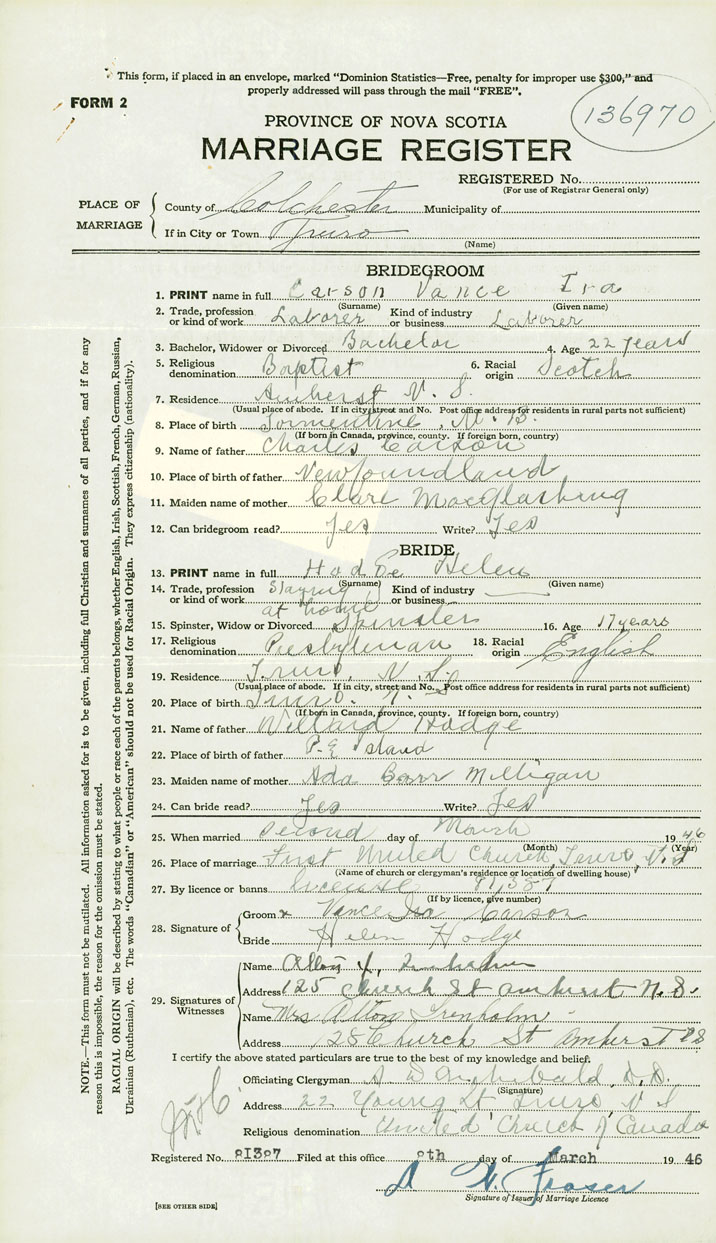 This form, if placed in an envelope, marked "Dominion Statistics—Free, penalty for improper use $300," and
properly addressed will pass through the mail "FREE".
FORM 2
136970
PROVINCE OF NOVA SCOTIA
MARRIAGE REGISTER
REGISTERED No.
(For use of Registrar General only)
PLACE OF MARRIAGE
County of Colchester Municipality of
If in City or Town Truro
(Name)
BRIDEGROOM
1. PRINT name in full Carson Vance Ira
(Surname) (Given name)
2. Trade, profession or kind of work Laborer Kind of industry or business Laborer
3. Bachelor, Widower or Divorced Bachelor 4. Age 22 years
5. Religious denomination Baptist 6. Racial origin Scotch
7. Residence Amherst N. S.
(Usual place of abode. If in city, street and No. Post office address for residents in rural parts not sufficient)
8. Place of birth Tormentine, N. B.
(If born in Canada, province, county. If foreign born, country)
9. Name of father Charles Carson
10. Place of birth of father Newfoundland
11. Maiden name of mother Clare MacGlashing
12. Can bridegroom read? Yes Write? Yes
BRIDE
13. PRINT name in full Hodge Helen
(Surname) (Given name)
14. Trade, profession or kind of work Staying at home Kind of industry or business
15. Spinster, Widow or Divorced Spinster 16. Age 17 years
17. Religious denomination Presbyterian 18. Racial origin English
19. Residence Truro, N. S.
(Usual place of abode. If in city, street and No. Post office address for residents in rural parts not sufficient)
20. Place of birth Truro
(If born in Canada, province, county. If foreign born, country)
21. Name of father Willard Hodge
22. Place of birth of father P. E Island
23. Maiden name of mother Ada Barr Milligan
24. Can bride read? Yes Write? Yes
25. When married second day of March 1946
(Month) (Year)
26. Place of marriage First United Church, Truro, N. S
(Name of church or clergyman's residence or location of dwelling house)
27. By licence or banns license
(If by licence, give number)
28. Signature of
Groom x Vance Ira Carson
Bride Helen Hodge
29. Signatures of Witnesses
Name
Address 125 Church St Amherst N. S.
Name Mrs Alton Trenholm
Address Church St Amherst NS
I certify the above stated particulars are true to the best of my knowledge and belief.
Officiating Clergyman Archibald, D. D.
(Signature)
Address 22 Young St Truro, N S
Religious denomination United Church of Canada
Registered No. Filed at this office 8th day of March 19 46
Fraser
Signature of Issuer of Marriage Licence
[SEE OTHER SIDE]
NOTE.—This form must not be mutilated. All information asked for is to be given, including full Christian and surnames of all parties, and if for any
reason this is impossible, the reason for the omission must be stated.
RACIAL ORIGIN will be described by stating to what people or race each of the parents belongs, whether English, Irish, Scottish, French, German, Russian,
Ukrainian (Ruthenian), etc. The words "Canadian" or "American" should not be used for Racial Origin. They express citizenship (nationality).